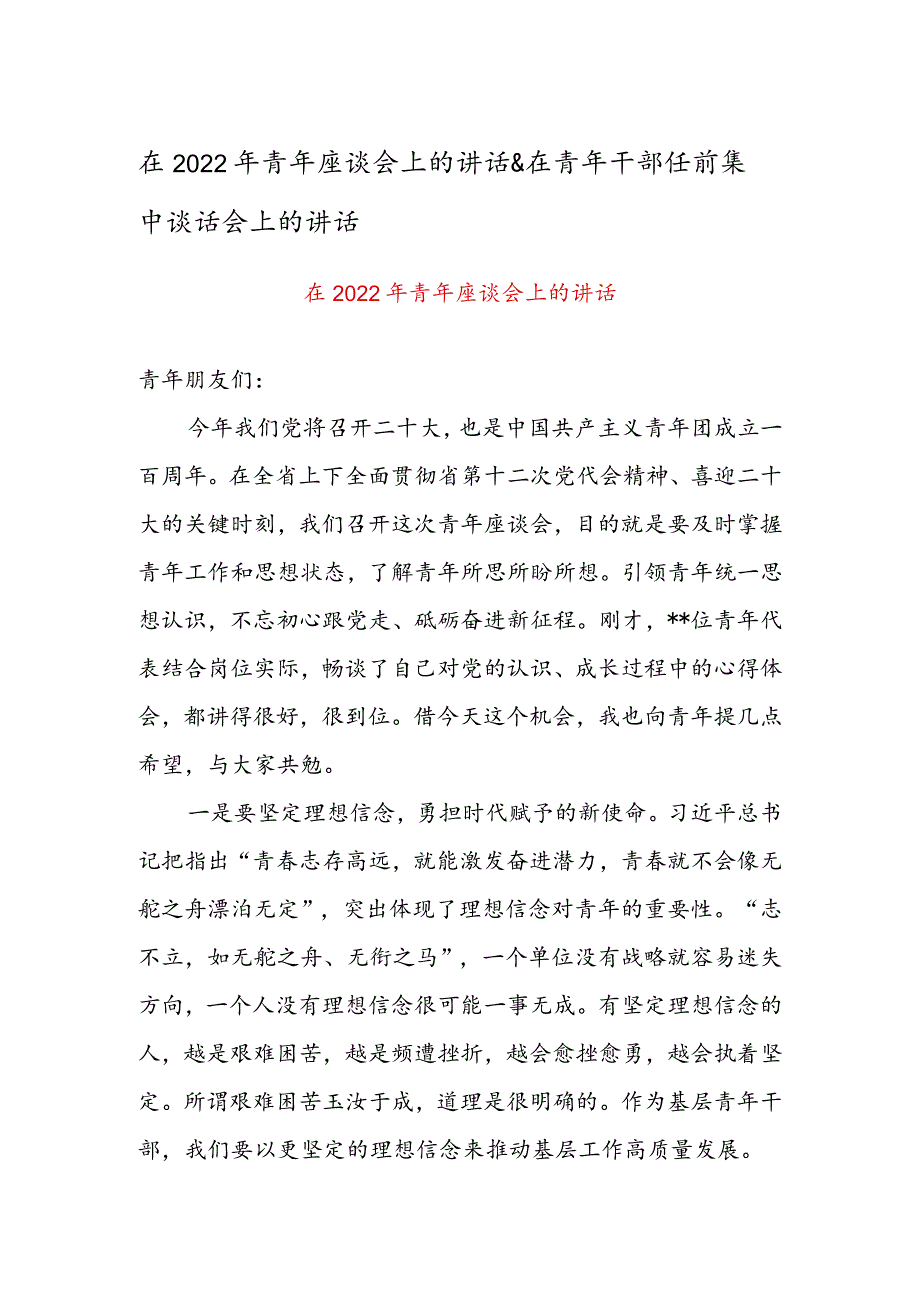 在 2022 年青年座谈会上的讲话&在青年干部任前集
中谈话会上的讲话
在 2022 年青年座谈会上的讲话
青年朋友们：
今年我们党将召开二十大，也是中国共产主义青年团成立一
百周年。在全省上下全面贯彻省第十二次党代会精神、喜迎二十
大的关键时刻，我们召开这次青年座谈会，目的就是要及时掌握
青年工作和思想状态，了解青年所思所盼所想。引领青年统一思
想认识，不忘初心跟党走、砥砺奋进新征程。刚才，**位青年代
表结合岗位实际，畅谈了自己对党的认识、成长过程中的心得体
会，都讲得很好，很到位。借今天这个机会，我也向青年提几点
希望，与大家共勉。
一是要坚定理想信念，勇担时代赋予的新使命。习近平总书
记把指出“青春志存高远，就能激发奋进潜力，青春就不会像无
舵之舟漂泊无定”，突出体现了理想信念对青年的重要性。“志
不立，如无舵之舟、无衔之马”，一个单位没有战略就容易迷失
方向，一个人没有理想信念很可能一事无成。有坚定理想信念的
人，越是艰难困苦，越是频遭挫折，越会愈挫愈勇，越会执着坚
定。所谓艰难困苦玉汝于成，道理是很明确的。作为基层青年干
部，我们要以更坚定的理想信念来推动基层工作高质量发展。